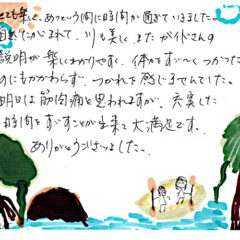 とても楽しく、あっという間に時間が過ぎていきました。
自然にかこまれて、川も美しく、またガイドさんの
説明が楽しくわかりやすく、体力をすごーくつかった
のにもかかわらず、つかれを感じませんでした。
明日は筋肉痛と思われますが、充実した
時間をすごすことが出来て大満足です。
ありがとうございました。